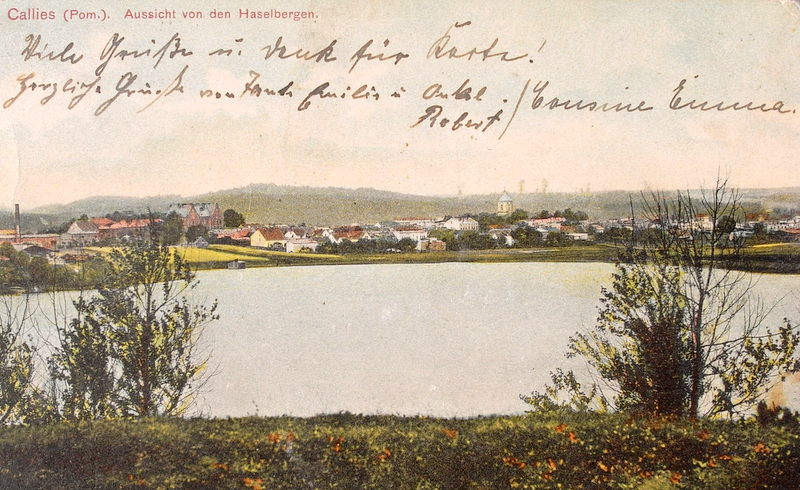 Callies (Pom.). Aussicht von den Haselbergen.
Viele Grüße u. dank für Karte!
Herzliche Grüße von Tante Emilie u Onkel.
Robert / Cousine Emma.